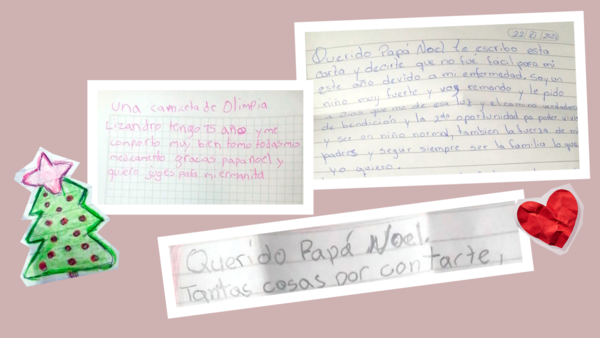 una camiceta de Olimpia
Lizandro tengo 15 años y me
comporto muy bien tomo todas mis
medicamento gracias papa noel y
quiero juges para mi ermanita
Querido Papá Noel te escribo esta
carta y decirte que no fué fácil para mi
este año devido a mi enfermedad. Soy un
niño muy fuerte y voy remando y le pido
a Dios que me de esa luz y el camino verdadero
de bendición y la 2da oportunidad pa poder vivir
y ser un niño normal, tambien la fuerza de mis
padres y seguir siempre ser la familia la que
yo quiero.
Querido Papá Noel.
Tantas cosas por contarte,